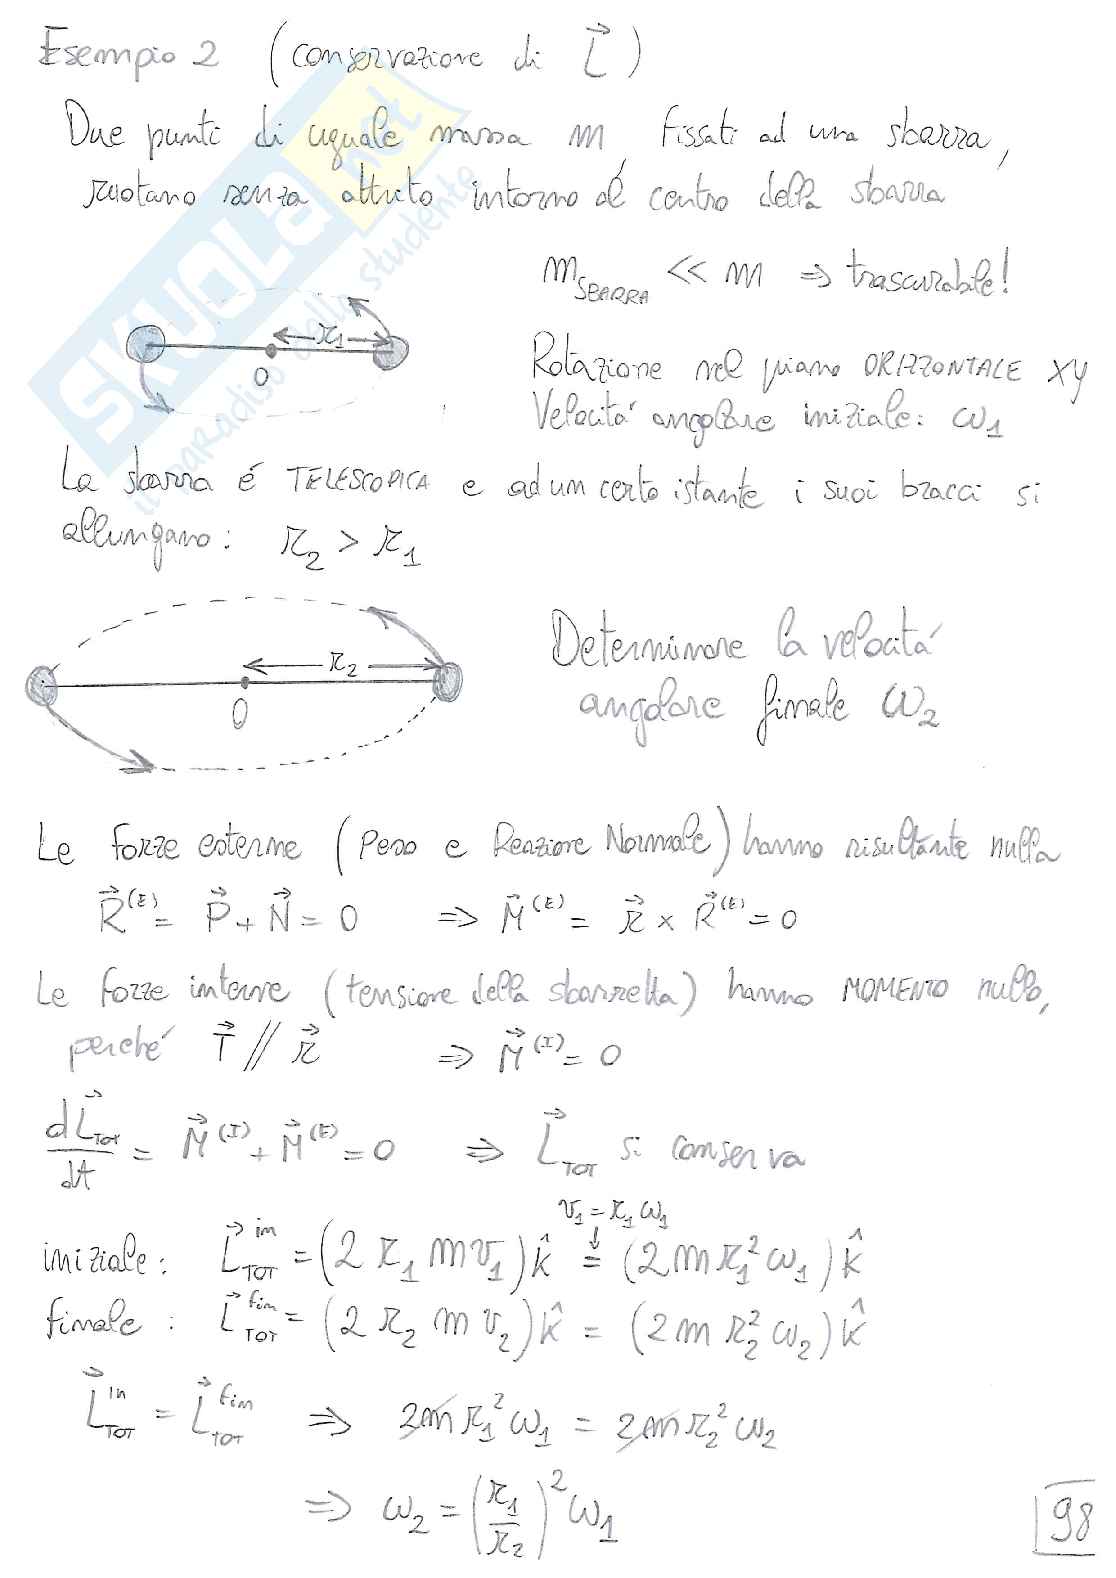 Esempio 2 (conservazione di L⃗)
Due punti di uguale massa m, fissati ad una sbarra,
ruotano senza attrito intorno al centro della sbarra
m_SBARRA << m ⇒ trascurabile!
r₁
O
Rotazione nel piano ORIZZONTALE XY
Velocitá angolare iniziale: ω₁
La sbarra é TELESCOPICA e ad un certo istante i suoi bracci si
allungano: r₂ > r₁
r₂
O
Determinare la velocitá
angolare finale ω₂
Le forze esterne (Peso e Reazione Normale) hanno risultante nulla
R⃗^(E) = P⃗ + N⃗ = 0 ⇒ M⃗^(E) = r⃗ × R⃗^(E) = 0
Le forze interne (tensione della sbarretta) hanno MOMENTO nullo,
perché T⃗ // r⃗ ⇒ M⃗^(I) = 0
dL⃗_TOT/dt = M⃗^(I) + M⃗^(E) = 0 ⇒ L⃗_TOT si conserva
v₁ = r₁ω₁
↓
iniziale: L⃗_TOT^in = (2 r₁ m v₁) k̂ = (2 m r₁² ω₁) k̂
finale: L⃗_TOT^fin = (2 r₂ m v₂) k̂ = (2 m r₂² ω₂) k̂
L⃗_TOT^in = L⃗_TOT^fin ⇒ 2m r₁² ω₁ = 2m r₂² ω₂
⇒ ω₂ = (r₁/r₂)² ω₁
98
SKUOLA.net
il paradiso dello studente